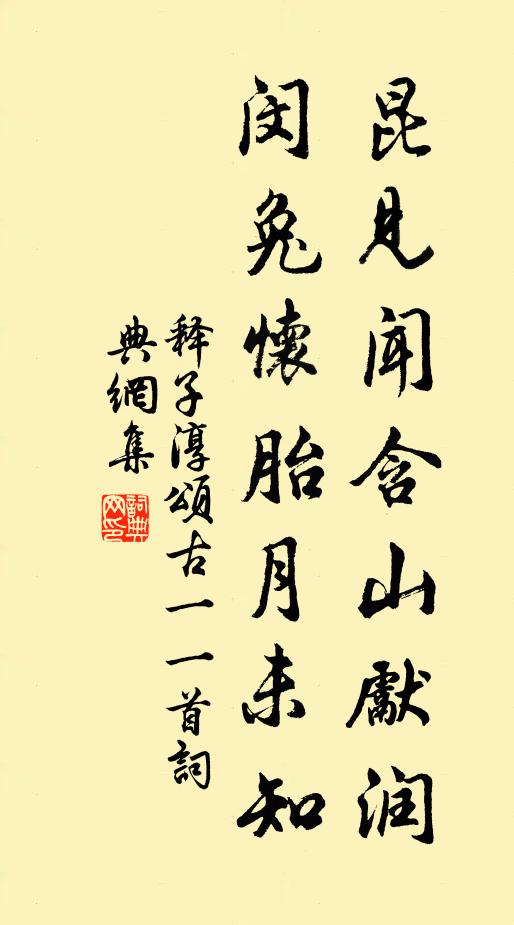 昆見聞含山獻润
闵兔懷胎月未知
释子淳頌古一一首詞
典網集
詞典网印